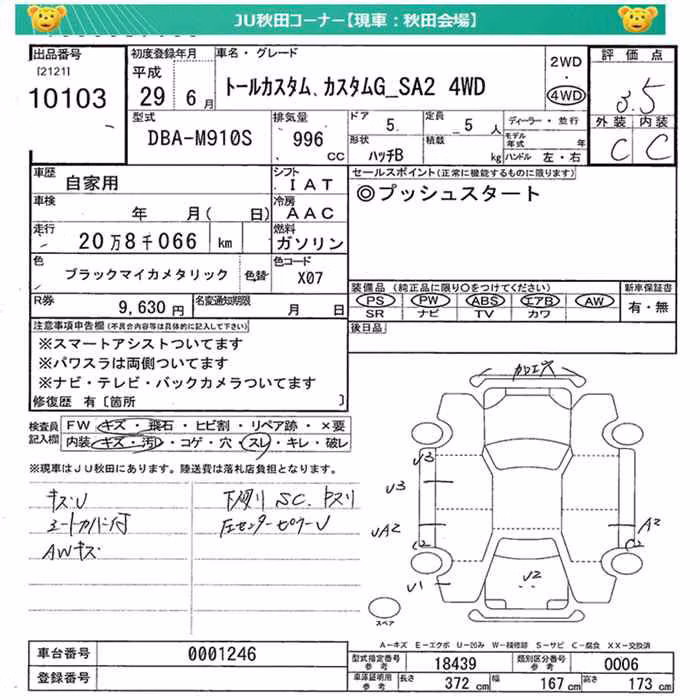 JU秋田コーナー【現車：秋田会場】
出品番号
[2121]
10103
初度登録年月
平成
29 6月
車名・グレード
トールカスタム、カスタムG_SA2 4WD
2WD
・
4WD
評価点
3.5
外装 内装
C C
型式
DBA-M910S
排気量
996
CC
ドア
5
定員
5 人
形状
ハッチB
積載
kg
ディーラー・並行
モデル年式 年
ハンドル 左・右
車歴
自家用
シフト
IAT
車検
年 月( 日)
冷房
AAC
走行
20万8千066 km
燃料
ガソリン
色
ブラックマイカメタリック
色替
色コード
X07
R券
9,630円
名変通知期限
月 日
セールスポイント(正常に機能するものに限ります)
◎プッシュスタート
装備品 (純正品に限り〇をつけてください)
PS PW ABS エアB AW
SR ナビ TV カワ
新車保証書
有・無
後日品
注意事項申告欄(不具合内容等は具体的に記入して下さい)
※スマートアシストついてます
※パワスラは両側ついてます
※ナビ・テレビ・バックカメラついてます
修復歴 有〔箇所 〕
検査員記入欄
FW キズ・飛石・ヒビ割・リペア跡・×要
内装 キズ・汚・コゲ・穴・スレ・キレ・破レ
※現車はJU秋田にあります。陸送費は落札店負担となります。
キズ・U
シートカバー付
AWキズ
下廻り SC.サビ
左センターピラーU
加工穴
U3
U3
UA2
C2
U1
U2
A2
C2
スペア
A－キズ E－エクボ U－凹み W－補修跡 S－サビ C－腐食 XX－交換済
車台番号
0001246
登録番号
型式指定番号
参考
18439
類別区分番号
参考
0006
車庫証明用
参考
長さ 372 cm 幅 167 cm 高さ 173 cm